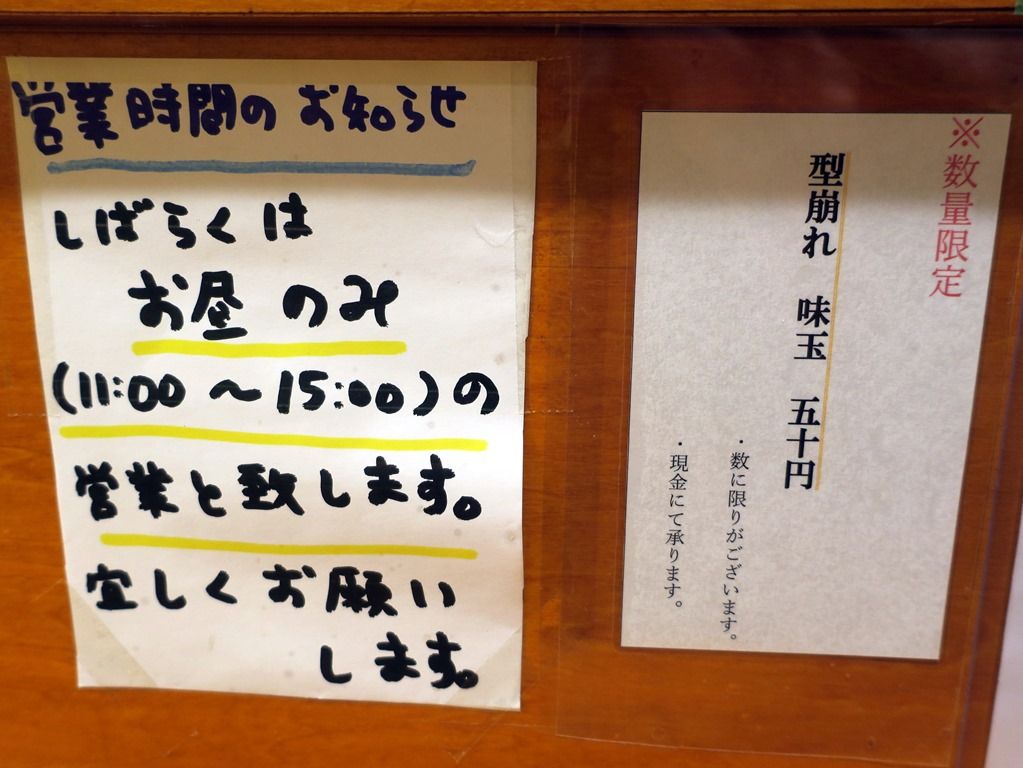 営業時間のお知らせ
しばらくは
お昼のみ
(11:00～15:00)の
営業と致します。
宜しくお願い
します。
※数量限定
型崩れ 味玉 五十円
・数に限りがございます。
・現金にて承ります。